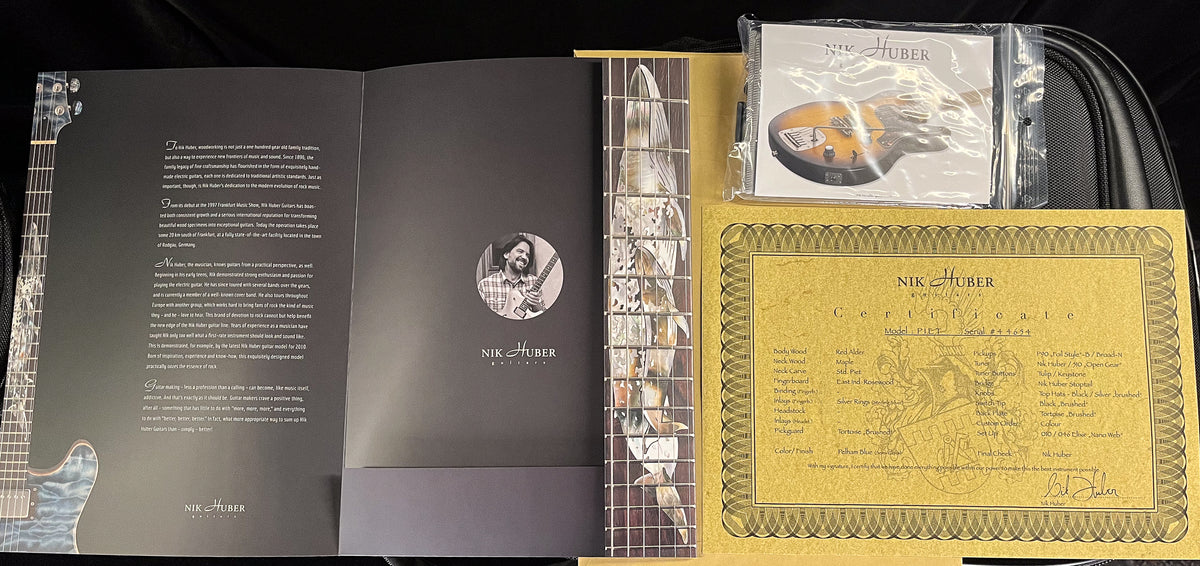 To Nik Huber, woodworking is not just a one hundred year old family tradition,
but also a way to experience new frontiers of music and sound. Since 1896, the
family legacy of fine craftsmanship has flourished in the form of exquisitely hand-
made electric guitars, each one is dedicated to traditional artistic standards. Just as
important, though, is Nik Huber's dedication to the modern evolution of rock music.
From its debut at the 1997 Frankfurt Music Show, Nik Huber Guitars has boas-
ted both consistent growth and a serious international reputation for transforming
beautiful wood specimens into exceptional guitars. Today the operation takes place
some 20 km south of Frankfurt, at a fully state-of-the-art facility located in the town
of Rodgau, Germany.
Nik Huber, the musician, knows guitars from a practical perspective, as well.
Beginning in his early teens, Nik demonstrated strong enthusiasm and passion for
playing the electric guitar. He has since toured with several bands over the years,
and is currently a member of a well-known cover band. He also tours throughout
Europe with another group, which works hard to bring fans of rock the kind of music
they – and he – love to hear. This brand of devotion to rock cannot but help benefit
the new edge of the Nik Huber guitar line. Years of experience as a musician have
taught Nik only too well what a first-rate instrument should look and sound like.
This is demonstrated, for example, by the latest Nik Huber guitar model for 2010.
Born of inspiration, experience and know-how, this exquisitely designed model
practically oozes the essence of rock.
Guitar making – less a profession than a calling – can become, like music itself,
addictive. And that's exactly as it should be. Guitar makers crave a positive thing,
after all – something that has little to do with "more, more, more," and everything
to do with "better, better, better." In fact, what more appropriate way to sum up Nik
Huber Guitars than – simply – better!
NIK HUBER
guitars
NIK HUBER
guitars
NIK HUBER
NIK HUBER
guitars
Certificate
Model PIET Serial #44654
Body Wood Red Alder
Neck Wood Maple
Neck Carve Std. Piet
Fingerboard East Ind. Rosewood
Binding (Fingerb.)
Inlays (Fingerb.) Silver Rings
Headstock
Inlays (Headst.)
Pickguard Tortoise „Brushed"
Color/Finish Pelham Blue
Pickups P90 „Foil Style"-B / Broad-N
Tuner Nik Huber / 510 „Open Gear"
Tuner Buttons Tulip / Keystone
Bridge Nik Huber Stoptail
Knobs Top Hats - Black / Silver „brushed"
Switch Tip Black „Brushed"
Back Plate Tortoise „Brushed"
Custom Order Colour
Set Up 010 / 046 Elixir „Nano Web"
Final Check Nik Huber
With my signature, I certify that we have done everything possible within our power to make this the best instrument possible
Nik Huber
Nik Huber